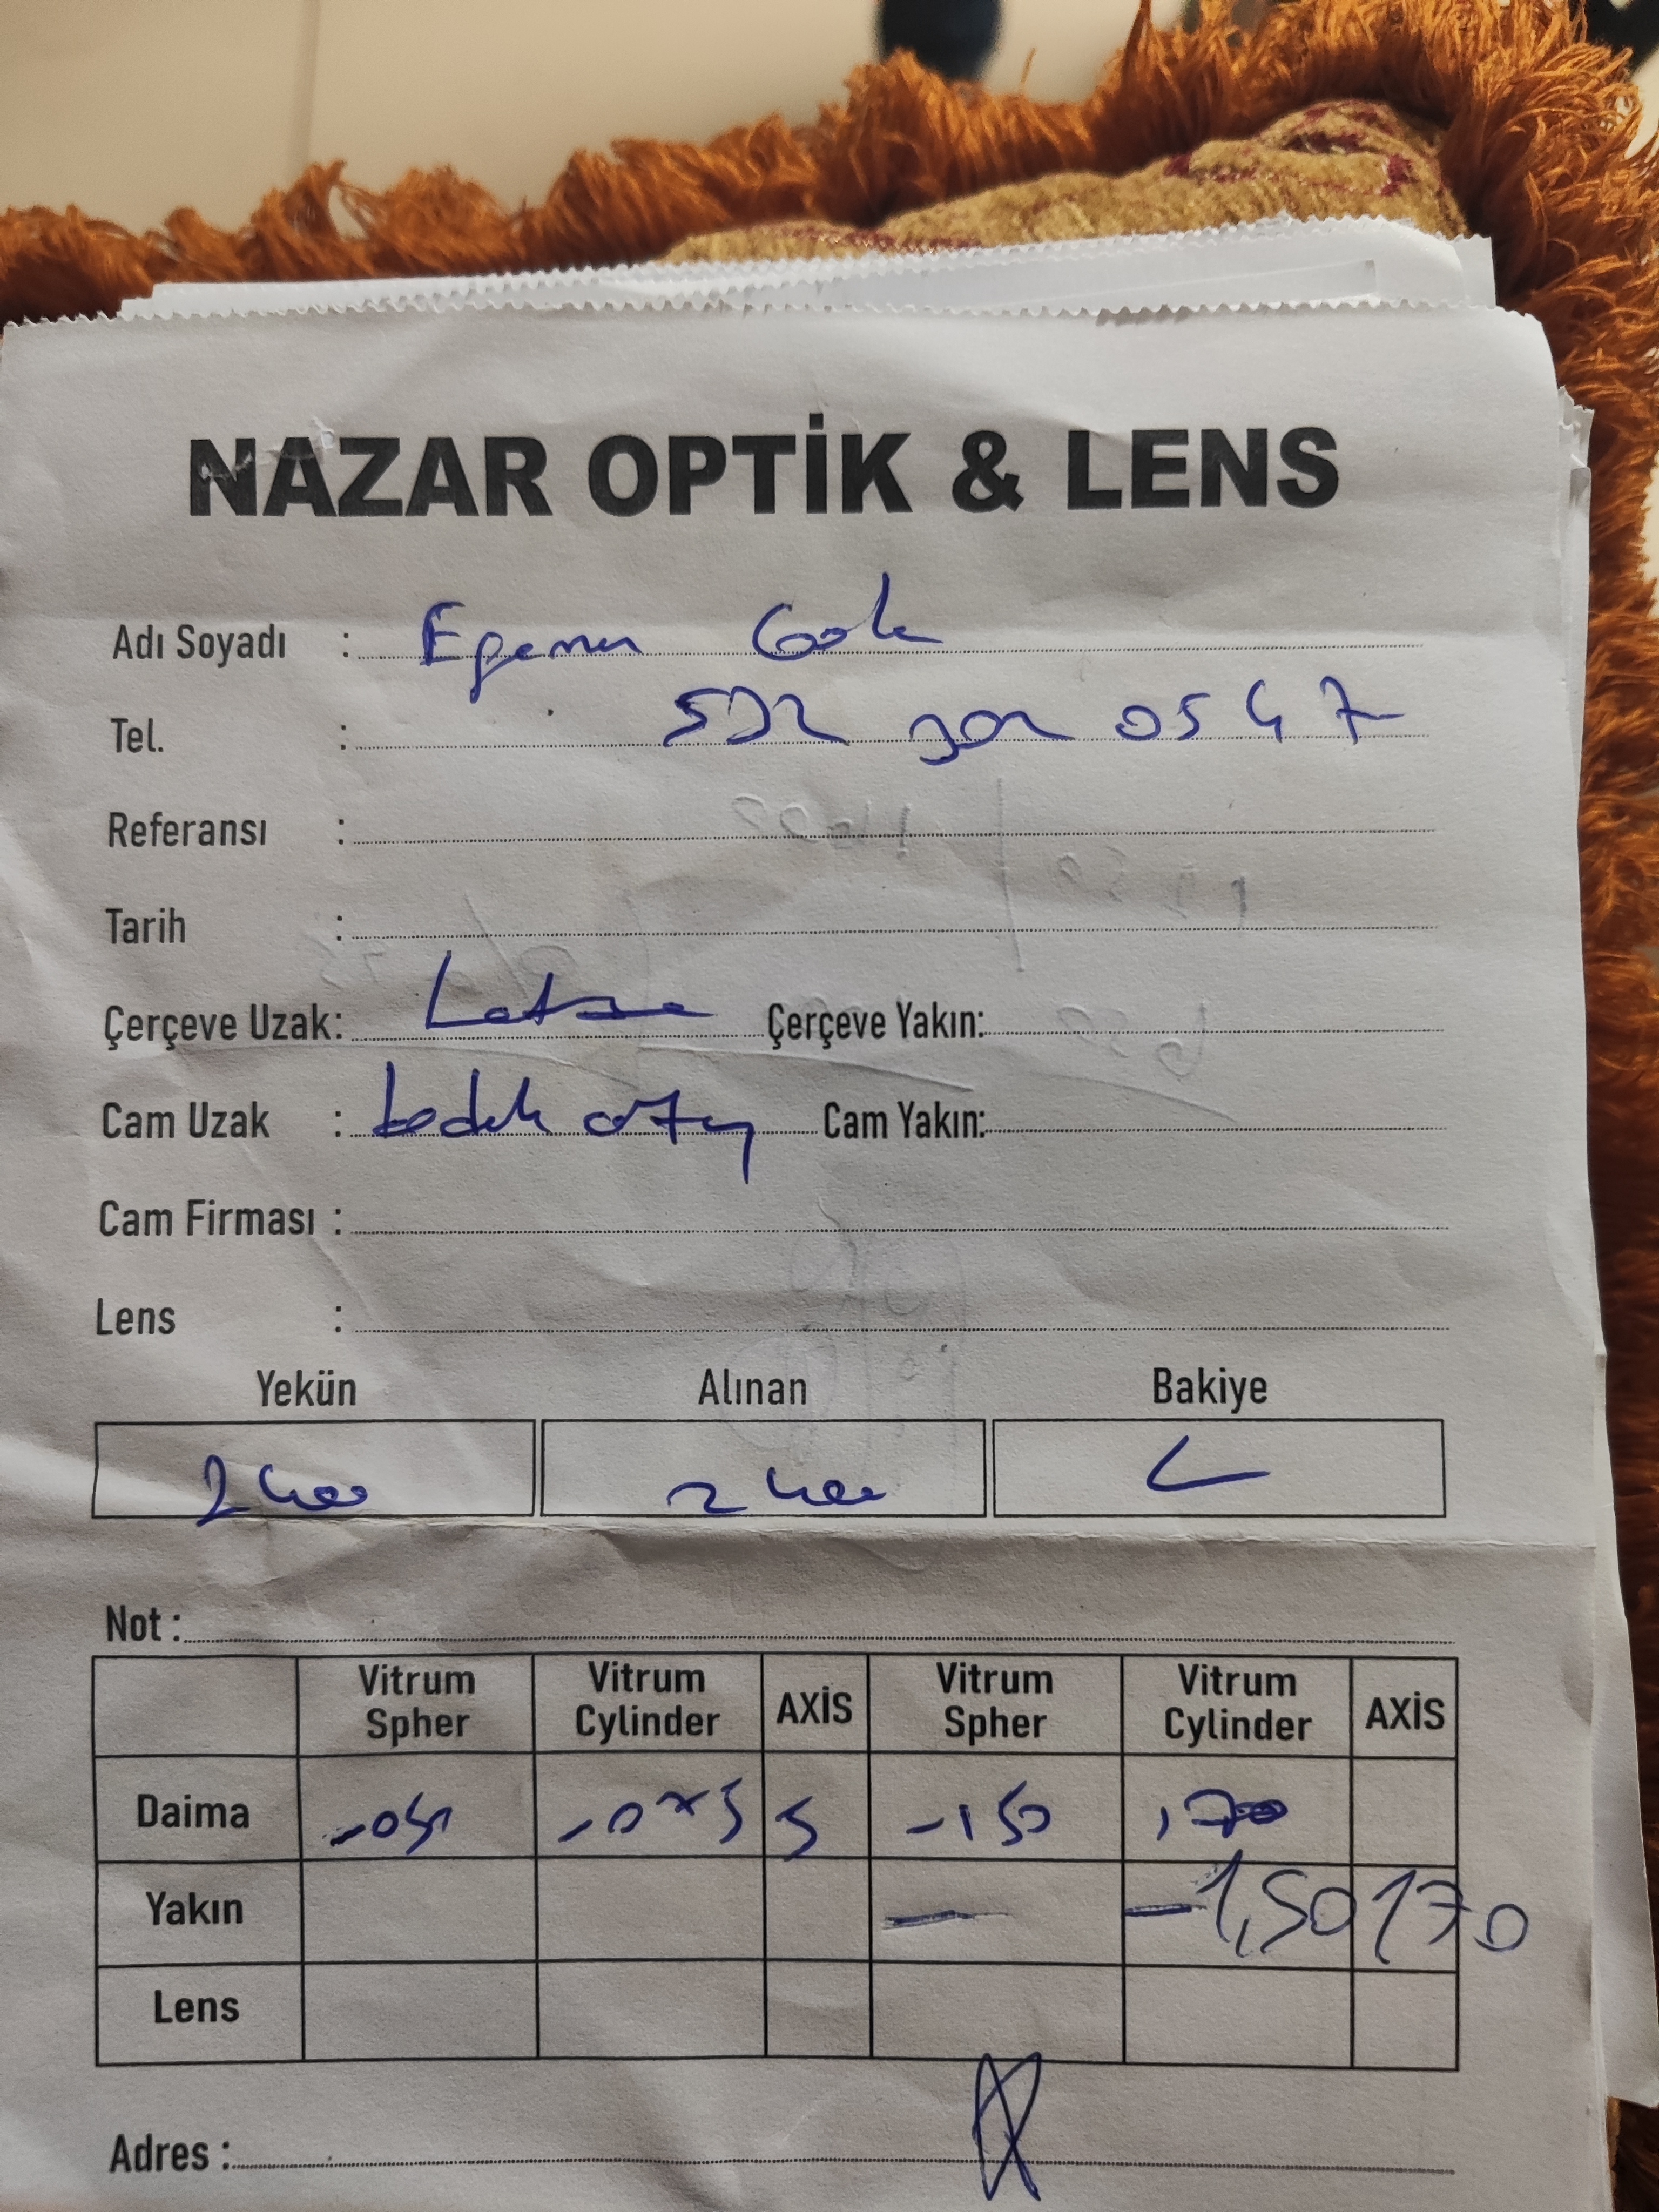 NAZAR OPTİK & LENS
Adı Soyadı : Egemen Gök
Tel. : 532 302 0547
Referansı :
Tarih :
Çerçeve Uzak: Çerçeve Yakın:
Cam Uzak : Cam Yakın:
Cam Firması :
Lens :
Yekün Alınan Bakiye
2400 2400
Not :
Vitrum Spher Vitrum Cylinder AXİS Vitrum Spher Vitrum Cylinder AXİS
Daima -0 -075 5 -150
Yakın — -1,50 170
Lens
Adres :